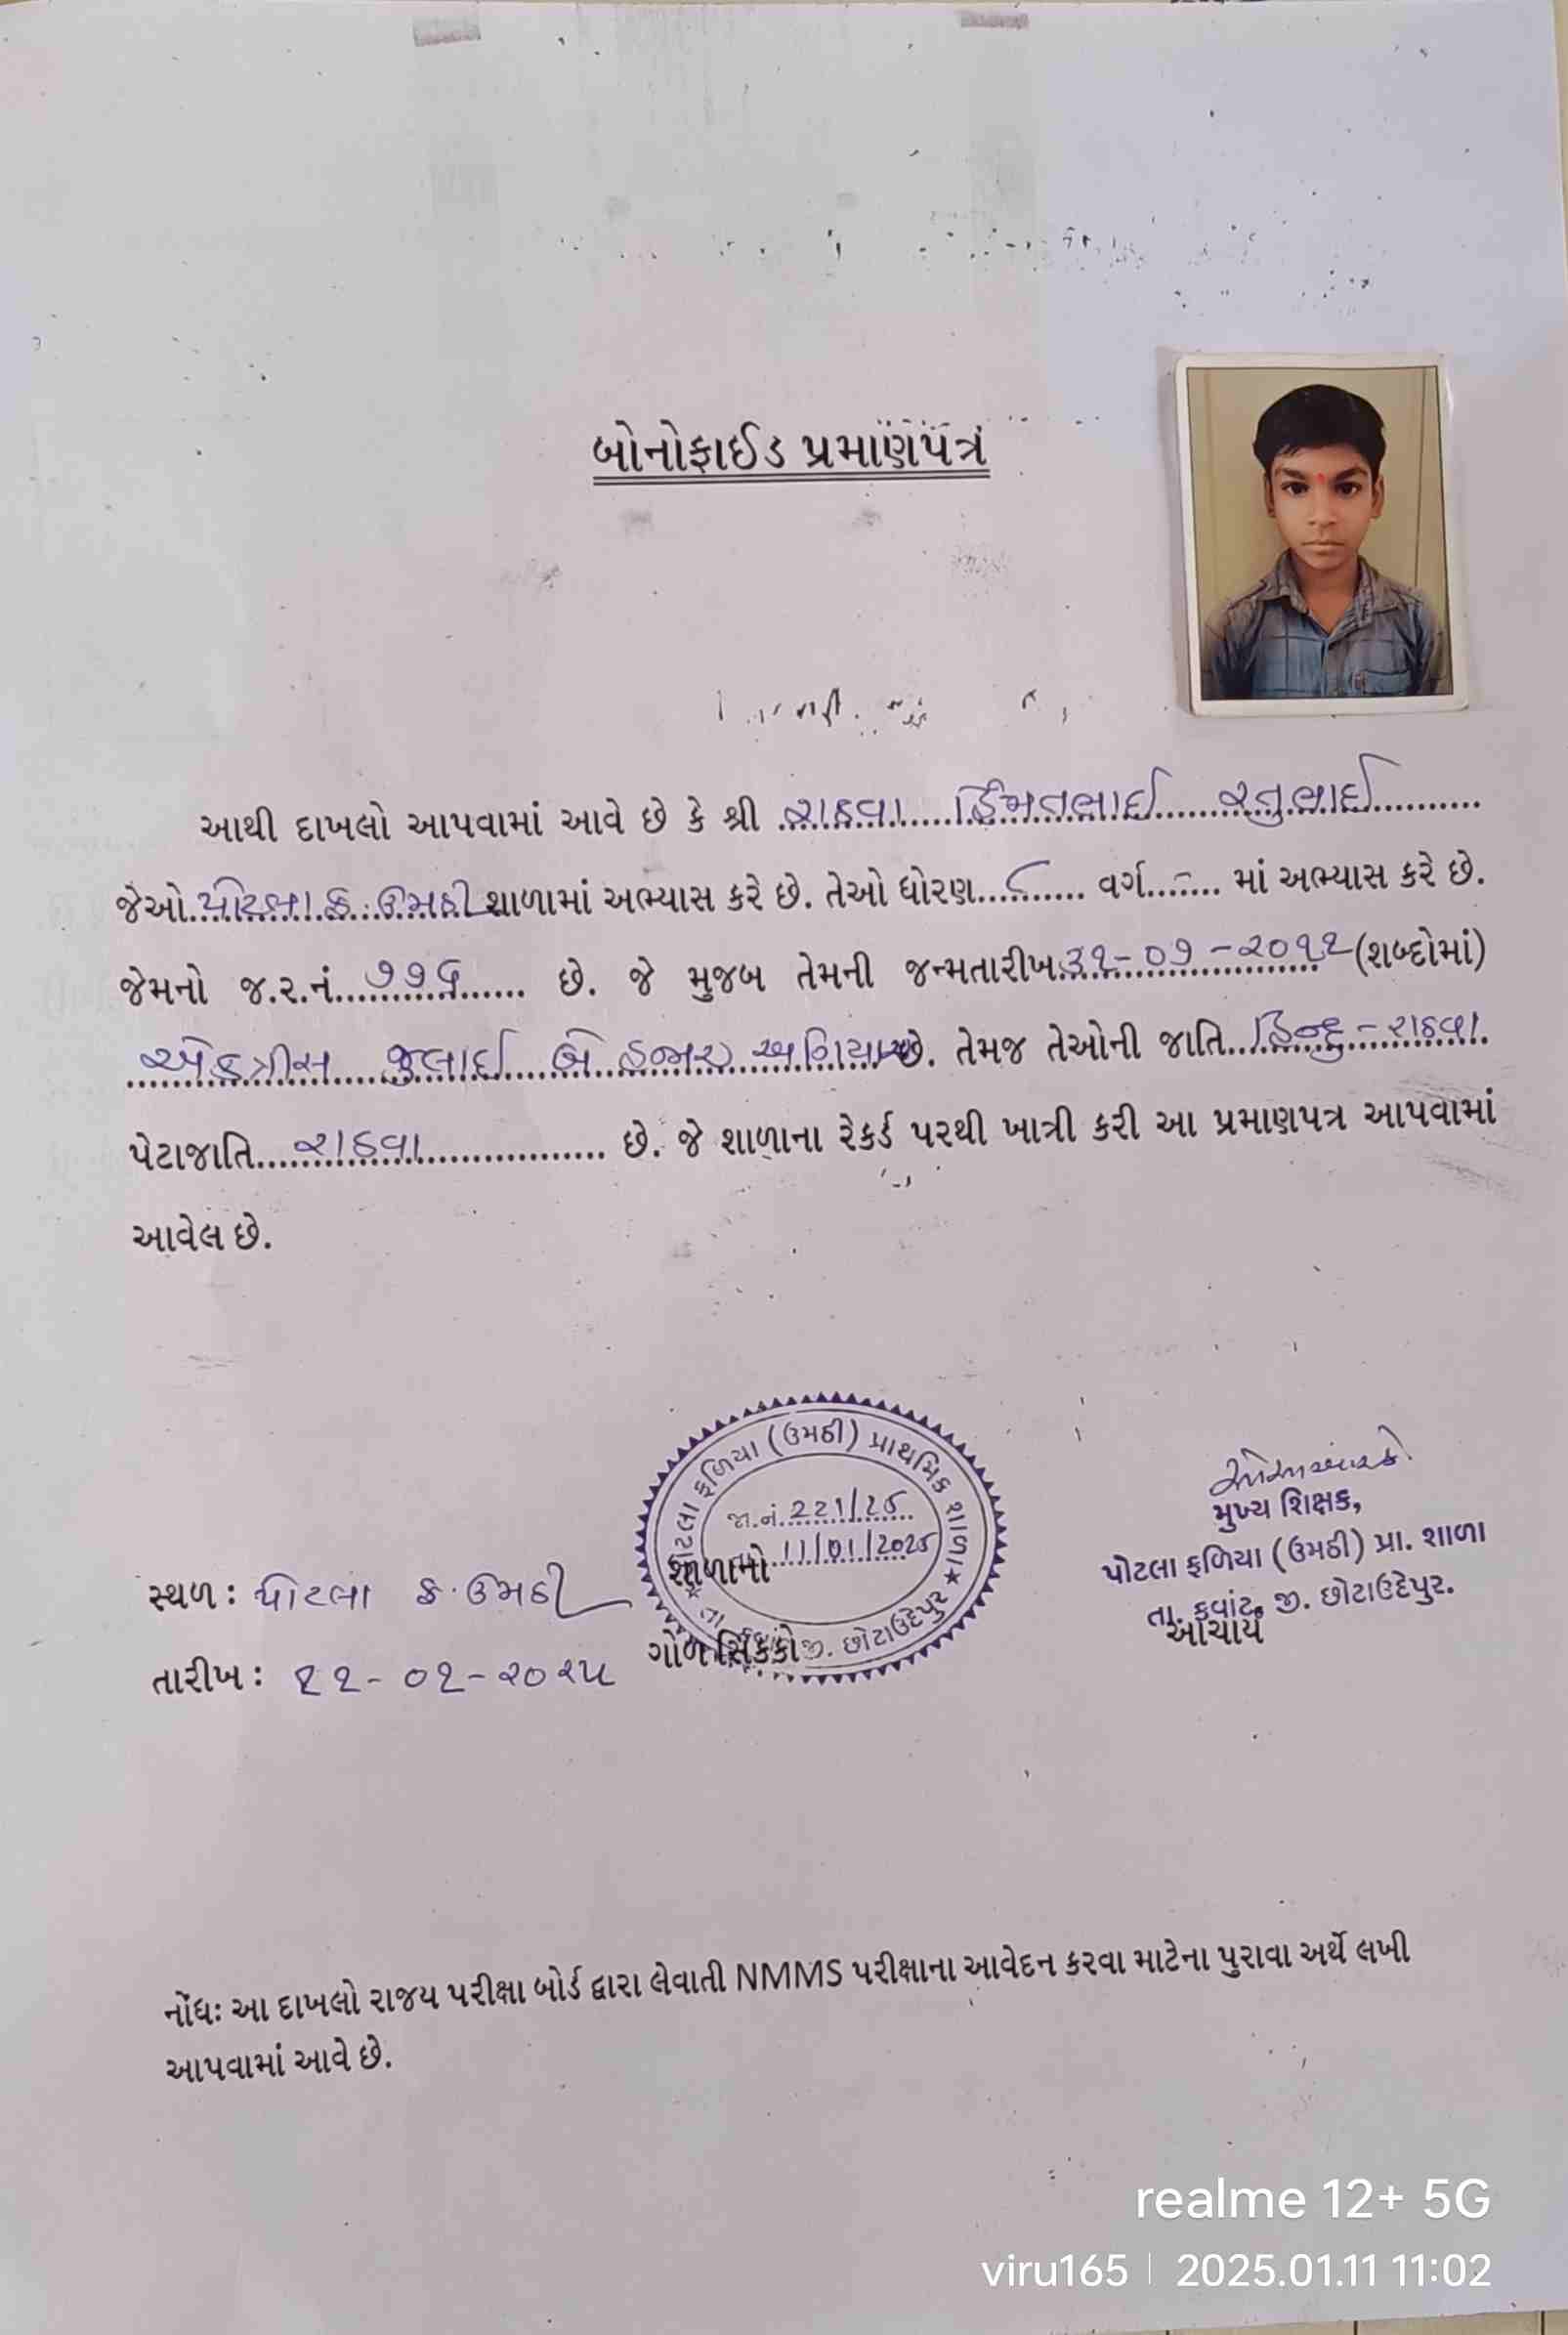 બોનોફાઈડ પ્રમાણપત્ર
આથી દાખલો આપવામાં આવે છે કે શ્રી રાઠવા હિંમતભાઈ રતુભાઈ
જેઓ પોટલા ફ. ઉમઠી શાળામાં અભ્યાસ કરે છે. તેઓ ધોરણ ૮ વર્ગ - માં અભ્યાસ કરે છે.
જેમનો જ.ર.નં. ૭૭૬ છે. જે મુજબ તેમની જન્મતારીખ ૩૧-૦૭-૨૦૧૧ (શબ્દોમાં)
એકત્રીસ જુલાઈ બે હજાર અગિયાર છે. તેમજ તેઓની જાતિ હિન્દુ - રાઠવા
પેટાજાતિ રાઠવા છે. જે શાળાના રેકર્ડ પરથી ખાત્રી કરી આ પ્રમાણપત્ર આપવામાં
આવેલ છે.
પોટલા ફળિયા (ઉમઠી) પ્રાથમિક શાળા
જા.નં. 221/25
11/01/2025
જી. છોટાઉદેપુર
શાળાનો
ગોળ સિક્કો
મુખ્ય શિક્ષક,
પોટલા ફળિયા (ઉમઠી) પ્રા. શાળા
તા. કવાંટ, જી. છોટાઉદેપુર.
આચાર્ય
સ્થળ : પોટલા ફ. ઉમઠી
તારીખ : ૧૧-૦૧-૨૦૨૫
નોંધઃ આ દાખલો રાજય પરીક્ષા બોર્ડ દ્વારા લેવાતી NMMS પરીક્ષાના આવેદન કરવા માટેના પુરાવા અર્થે લખી
આપવામાં આવે છે.
realme 12+ 5G
viru165 | 2025.01.11 11:02